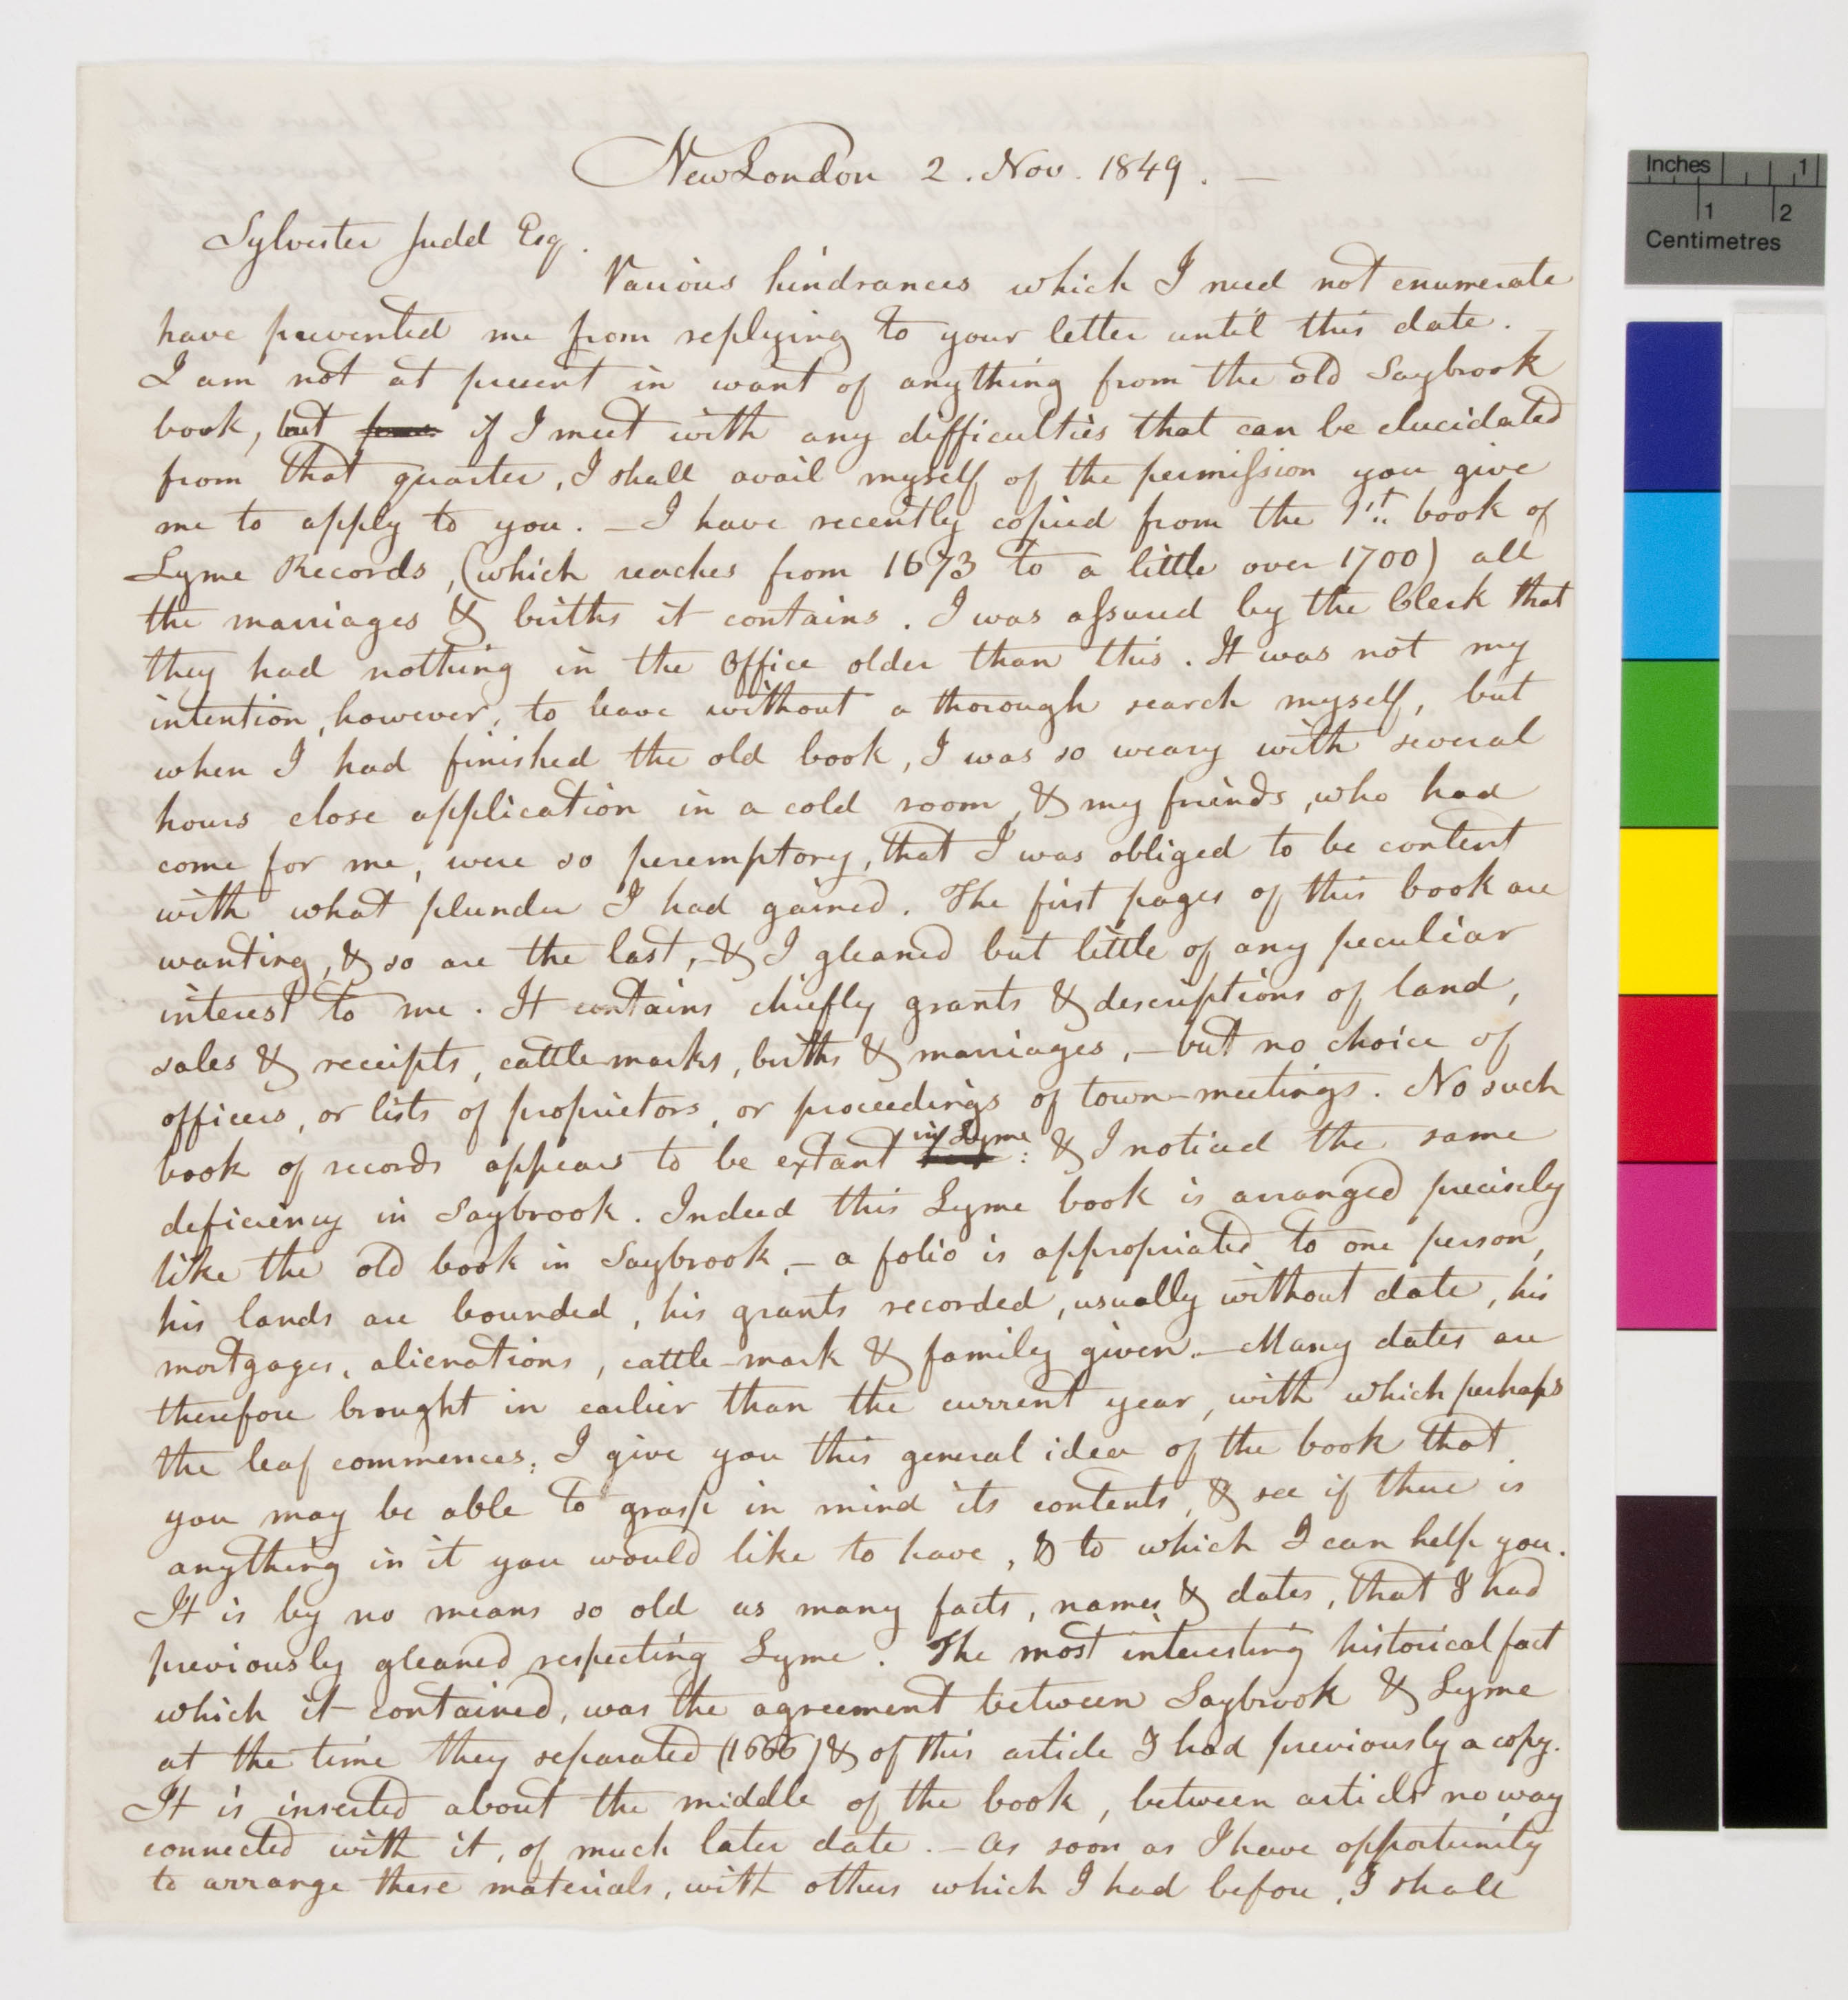 New London 2. Nov. 1849. —
Sylvester Judd Esq.
Various hindrances which I need not enumerate
have prevented me from replying to your letter until this date. —
I am not at present in want of anything from the old Saybrook
book, but if I meet with any difficulties that can be elucidated
from that quarter, I shall avail myself of the permiſsion you give
me to apply to you. — I have recently copied from the 1st. book of
Lyme Records, (which reaches from 1673 to a little over 1700) all
the marriages & births it contains. I was aſsured by the Clerk that
they had nothing in the Office older than this. It was not my
intention, however, to leave without a thorough search myself, but
when I had finished the old book, I was so weary with several
hours close application in a cold room, & my friends, who had
come for me, were so peremptory, that I was obliged to be content
with what plunder I had gained. The first pages of this book are
wanting, & so are the last, - & I gleaned but little of any peculiar
interest to me. It contains chiefly grants & descriptions of land,
sales & receipts, cattle marks, births & marriages, — but no choice of
officers, or lists of proprietors, or proceedings of town-meetings. No such
in Lyme
book of records appears to be extant : & I noticed the same
deficiency in Saybrook. Indeed this Lyme book is arranged precisely
like the old book in Saybrook, — a folio is appropriated to one person,
his lands are bounded, his grants recorded, usually without date, his
mortgages, alienations, cattle-mark & family given. — Many dates are
therefore brought in earlier than the current year, with which perhaps
the leaf commences; I give you this general idea of the book that
you may be able to grasp in mind its contents, & see if there is
anything in it you would like to have, & to which I can help you.
It is by no means so old as many facts, names & dates, that I had
previously gleaned respecting Lyme. The most interesting historical fact
which it contained, was the agreement between Saybrook & Lyme
at the time they separated (1666) & of this article I had previously a copy.
It is inserted about the middle of the book, between articles no way
connected with it, of much later date. — As soon as I have opportunity
to arrange these materials, with others which I had before, I shall
Inches 1
1 2
Centimetres